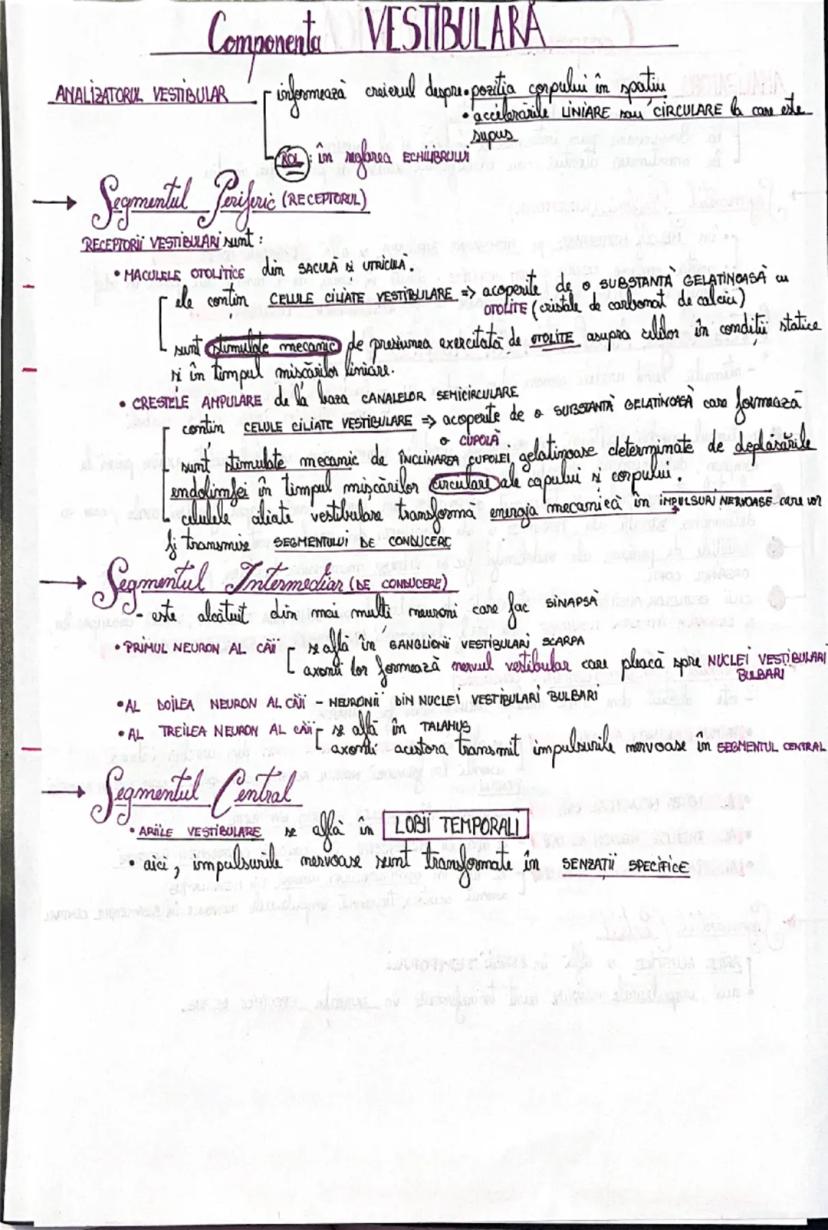 Componenta VESTIBULARĂ
ANALIZATORUL VESTIBULAR informează creierul despre • poziția corpului în spațiu
• accelerările LINIARE sau CIRCULARE la care este
supus
ROL: în reglarea ECHILIBRULUI
→ Segmentul Periferic (RECEPTORUL)
RECEPTORII VESTIBULARI sunt:
• MACULELE OTOLITICE din SACULĂ ȘI UTRICULĂ.
ele conțin CELULE CILIATE VESTIBULARE => acoperite de o SUBSTANȚĂ GELATINOASĂ cu
OTOLITE (cristale de carbonat de calciu)
sunt stimulate mecanic de presiunea exercitată de OTOLITE asupra cililor în condiții statice
și în timpul mișcărilor liniare.
• CRESTELE AMPULARE de la baza CANALELOR SEMICIRCULARE
conțin CELULE CILIATE VESTIBULARE => acoperite de o SUBSTANȚĂ GELATINOASĂ care formează
o CUPOLĂ
sunt stimulate mecanic de ÎNCLINAREA CUPOLEI gelatinoase determinate de deplasările
endolimfei în timpul mișcărilor circulare ale capului și corpului.
celulele ciliate vestibulare transformă energia mecanică în IMPULSURI NERVOASE care vor
fi transmise SEGMENTULUI DE CONDUCERE
→ Segmentul Intermediar (DE CONDUCERE)
• este alcătuit din mai mulți neuroni care fac SINAPSĂ
• PRIMUL NEURON AL CĂII se află în GANGLIONII VESTIBULARI SCARPA
axonii lor formează nervul vestibular care pleacă spre NUCLEI VESTIBULARI
BULBARI
• AL DOILEA NEURON AL CĂII – NEURONII DIN NUCLEI VESTIBULARI BULBARI
• AL TREILEA NEURON AL CĂII se află în TALAMUS
axonii acestora transmit impulsurile nervoase în SEGMENTUL CENTRAL
→ Segmentul Central
• ARIILE VESTIBULARE se află în LOBII TEMPORALI
• aici, impulsurile nervoase sunt transformate în SENZAȚII SPECIFICE